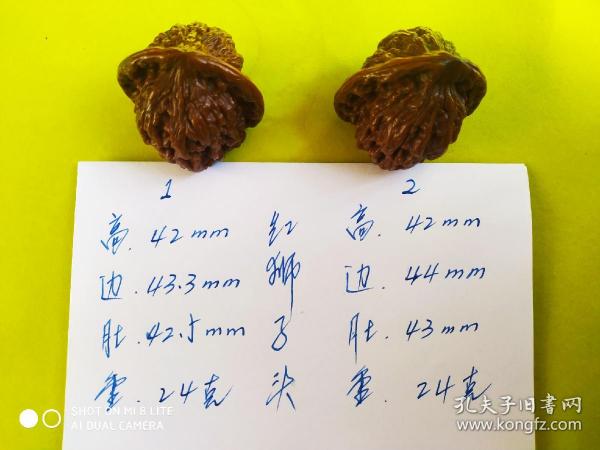 1
高. 42mm
边. 43.3mm
肚. 42.5mm
重. 24克
红狮子头
2
高. 42mm
边. 44mm
肚. 43mm
重. 24克
SHOT ON MI 8 LITE
AI DUAL CAMERA
孔夫子旧書网
www.kongfz.com